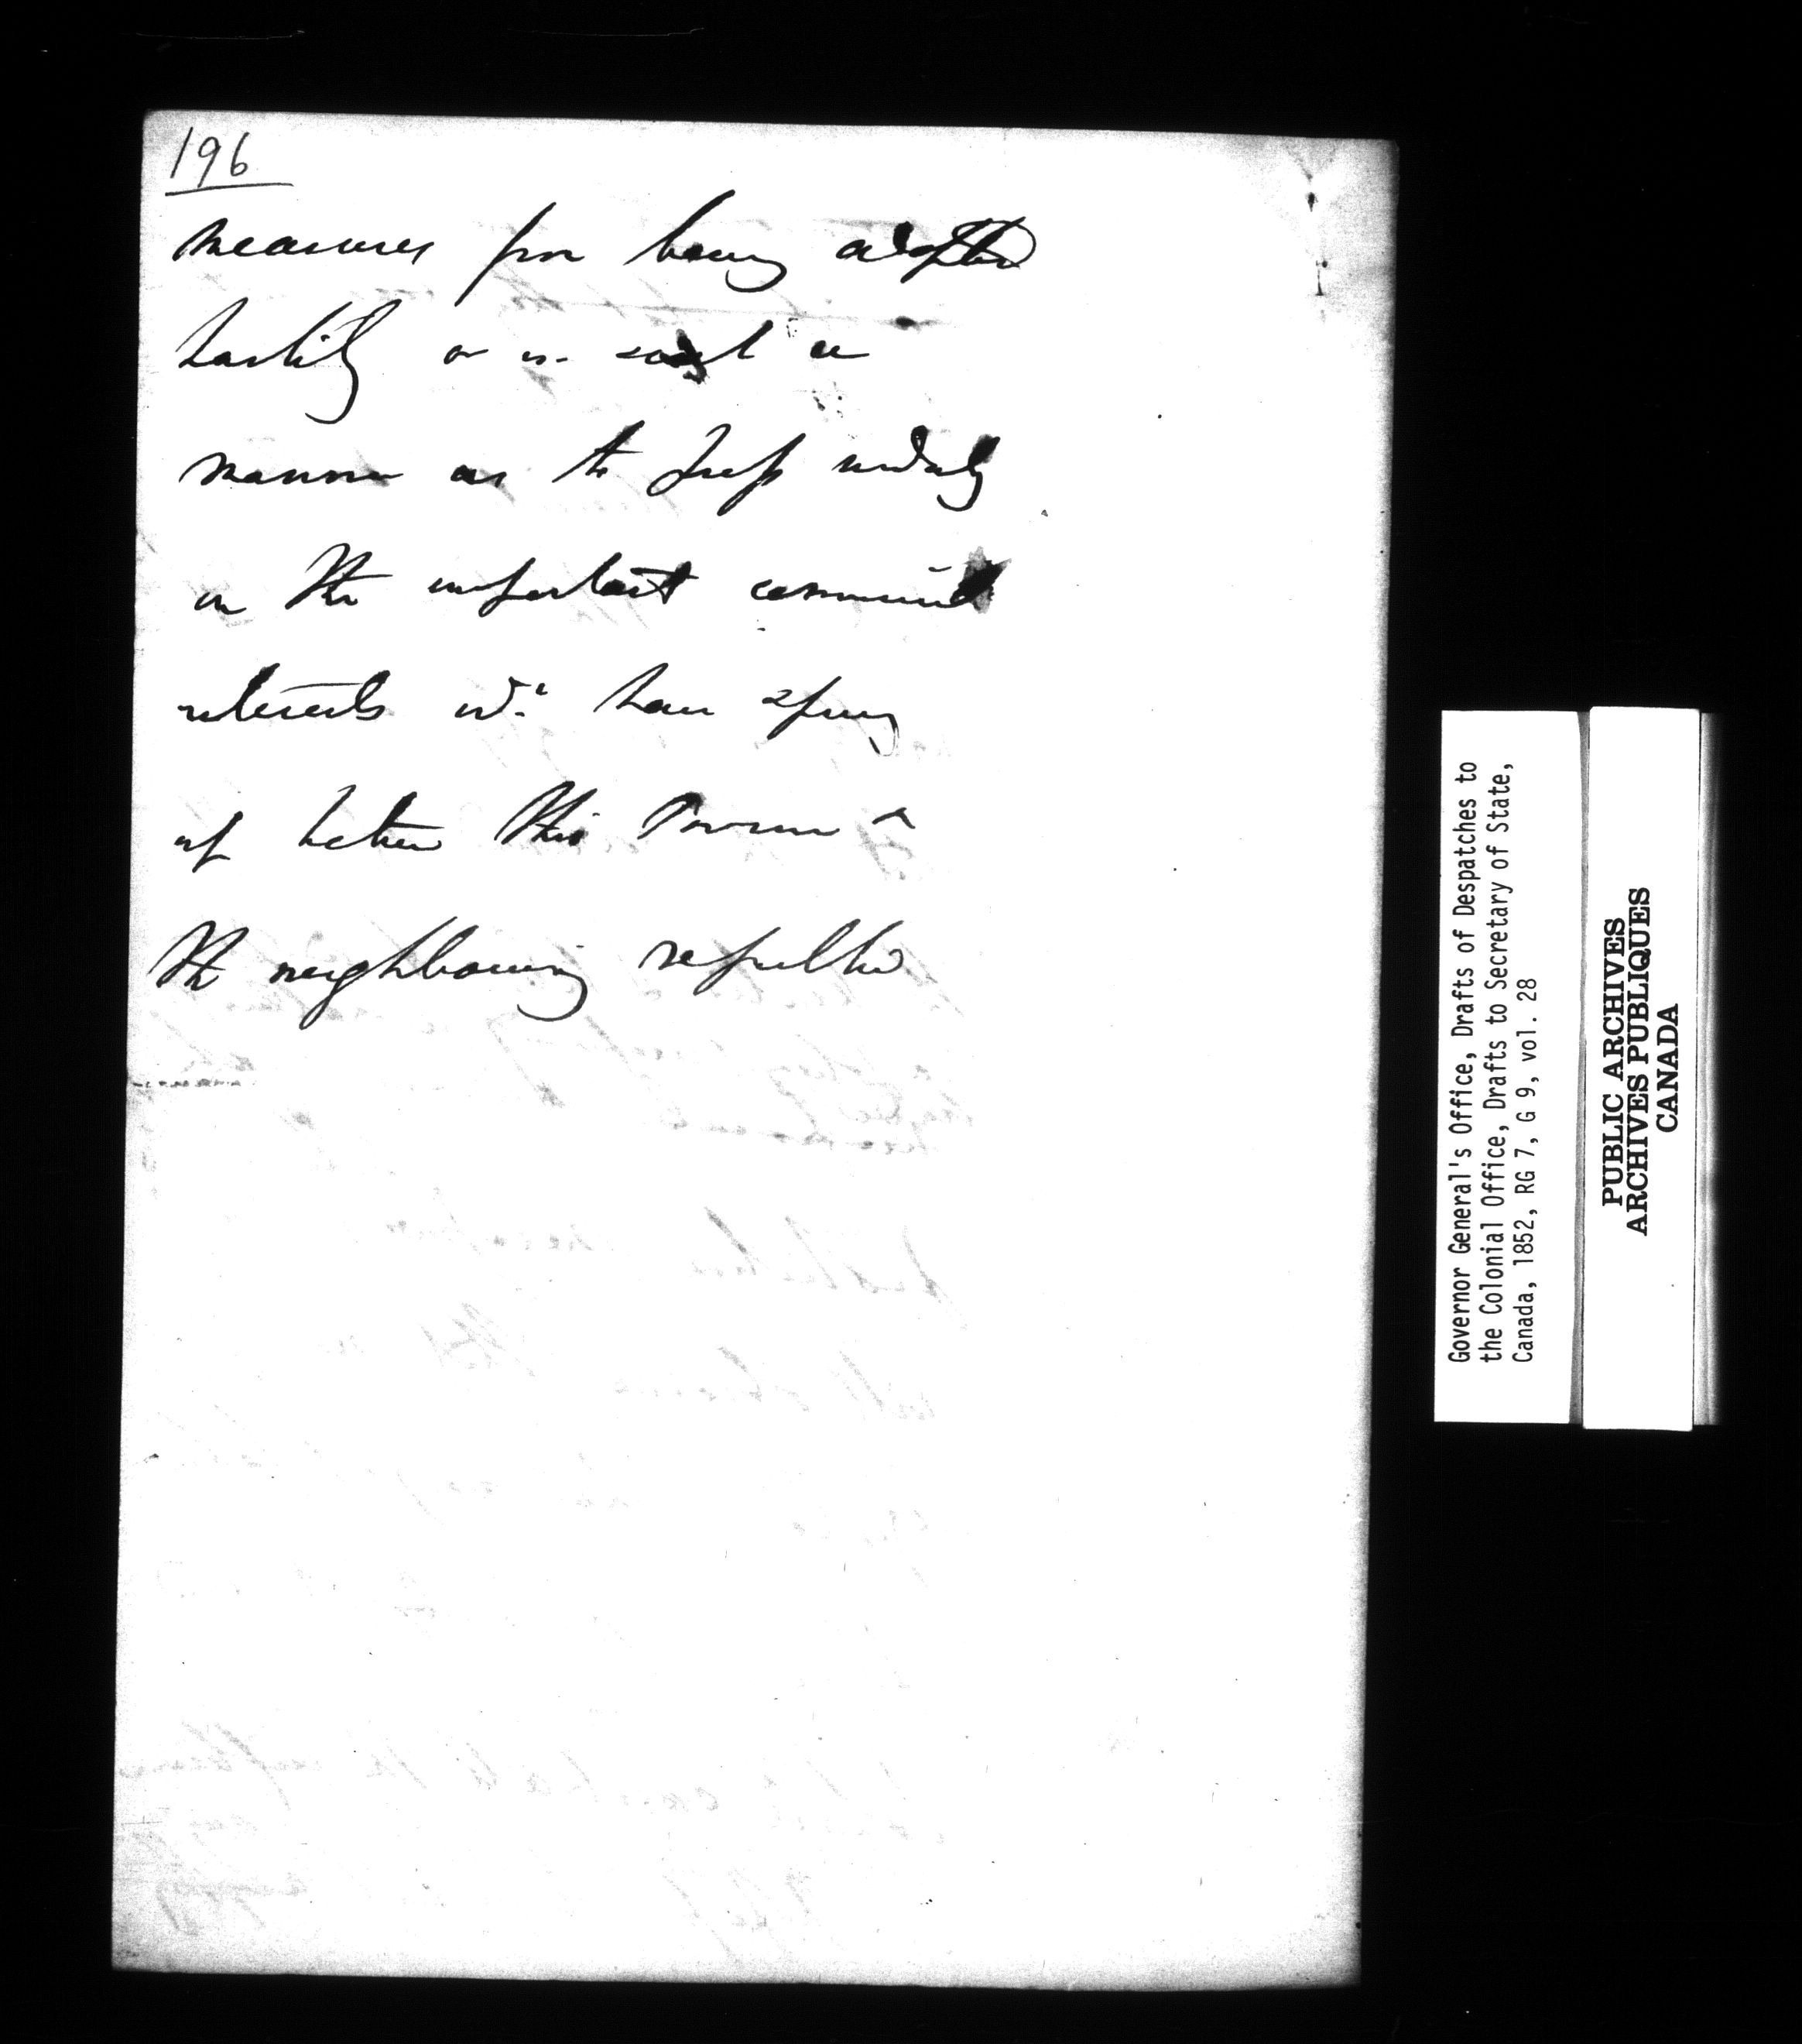 196
measures from being adopted
hastily or in such a
manner as to press unduly
on the important
interests wh: have sprung
up between this Province &
the neighbouring republic
Governor General's Office, Drafts of Despatches to
the Colonial Office, Drafts to Secretary of State,
Canada, 1852, RG 7, G 9, vol. 28
PUBLIC ARCHIVES
ARCHIVES PUBLIQUES
CANADA